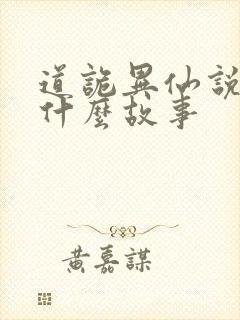 道詭異仙說
什麼故事
黃嘉謀